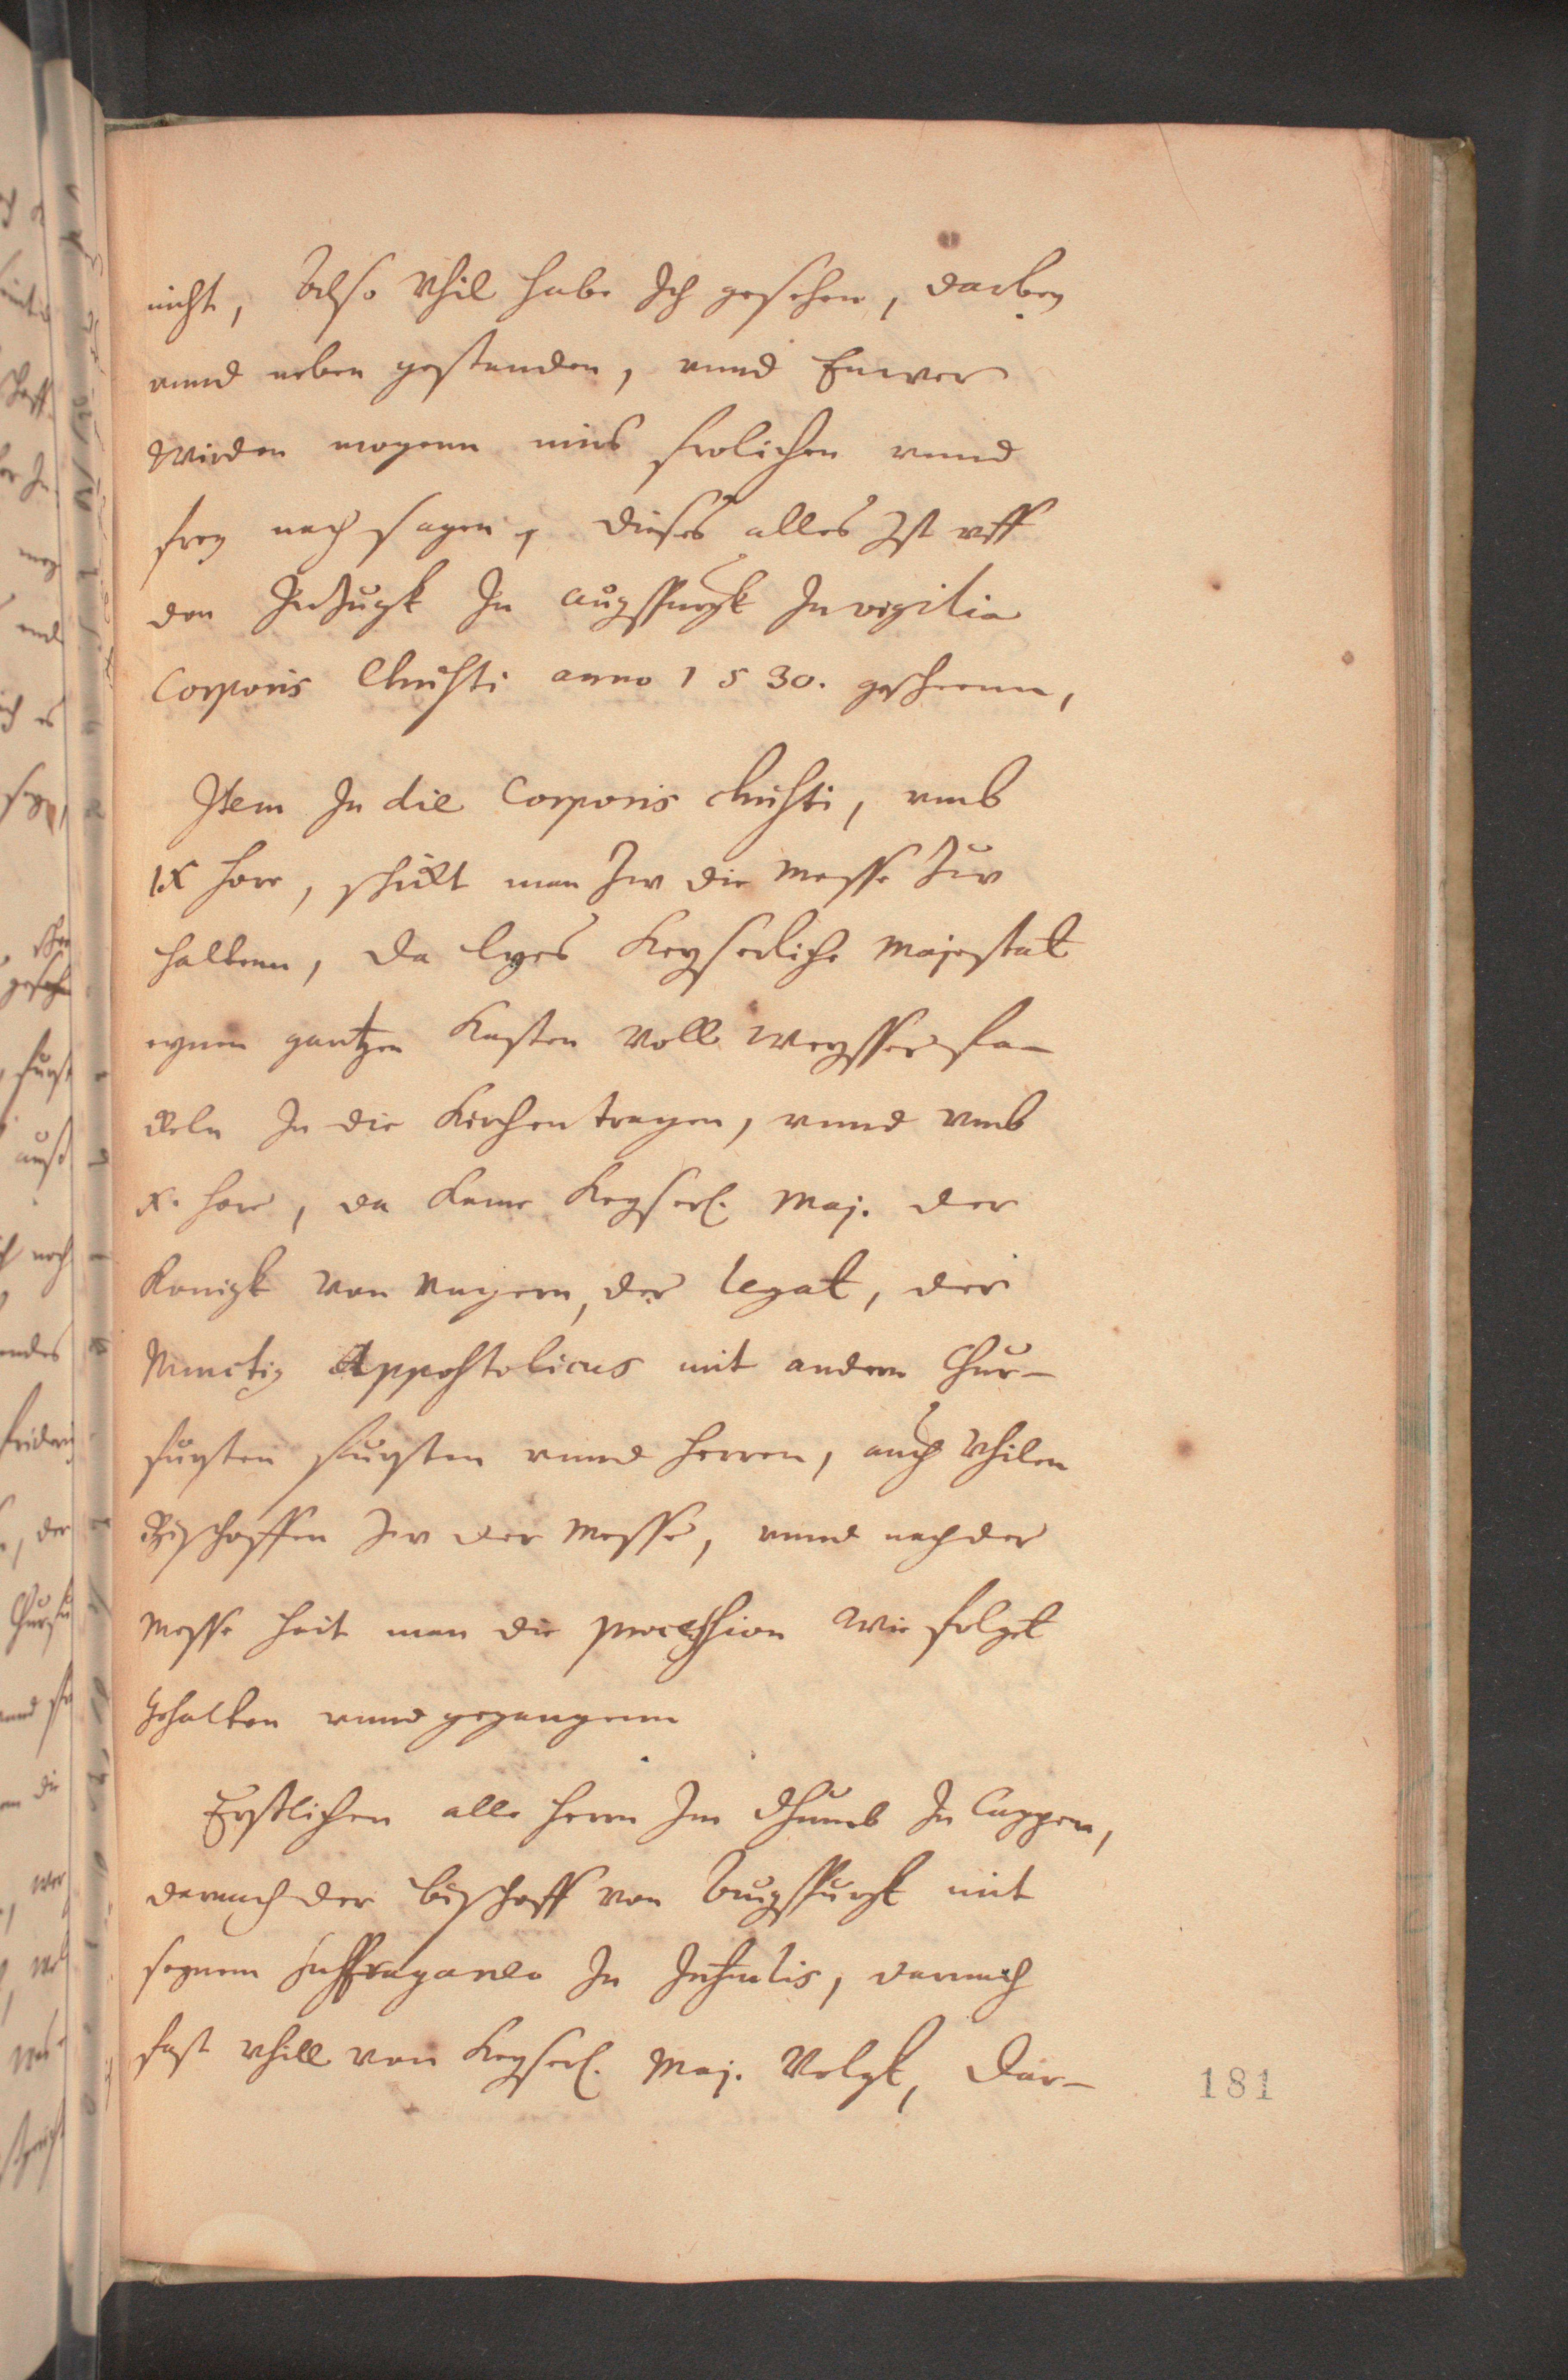 nicht, Also vhil habe Ich gesehen, darbey
vnnd neben gestanden, vnnd Euwer
Wirden mogenn mirs frolichen vnnd
frey nach sagen, dieses alles Ist vff
den Inzugk In augspurgk In vigilia
Corporis Christi anno 1530. gescheenn,
Item In die Corporis christi, vmb
IX hore, schickt man Zw die Messe Zuv
haltenn, da lyes Keyserliche Majestat
eynen gantzen Kasten voll weysser fa-
ckeln In die Kirchen tragen, vnnd vmb
X. hore, da kame Keyserl. Maj. der
Konigk von vngern, der legat, der
Nunctig Appostolicus mit andern Chur-
fursten fursten vnnd herren, auch vhilen
Bischoffen Zw der Messe, vnnd nach der
Messe heit man die procession wie folget
gehalten vnnd gegangenn
Erstlichen alle herrn Im Dhumb In Cappen,
darnach der bischoff von Augspurgk mit
seynem suffraganeo In Infulis, darnach
fast vhill von Keyserl. Maj. Volgk, dar-
181